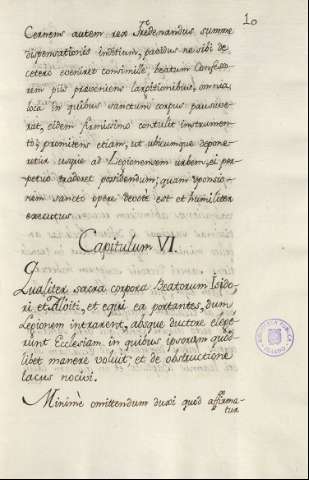 10
Cernens autem rex Fredenandus summe
dispensationis inditium, pavidus ne sibi de
cetero eveniret consimile, beatum Confeso-
rem piis præveniens largitionibus, omnia
loca in quibus sanctum corpus pausave-
rat, eidem firmissimo contulit instrumen-
to; promitens etiam, ut ubicumque depone-
retur usque ad Legionensem urbem, ei per-
petuo traderet possidendum; quam sponsio-
nem sancto opere devote est et humiliter
executus
Capitulum VI.
Qualiter sacra corpora Beatorum Isido-
ri et Aloiti, et equi ea portantes, dum
Legionem intrarent, absque ductore elege-
runt Eclesiam in quibus ipsorum quod-
libet manere voluit, et de obstructione
lacus nocivi.
Minimè omittendum duxi quod affirma-
tur
BIBLIOTECA PUBLICA
TOLEDO